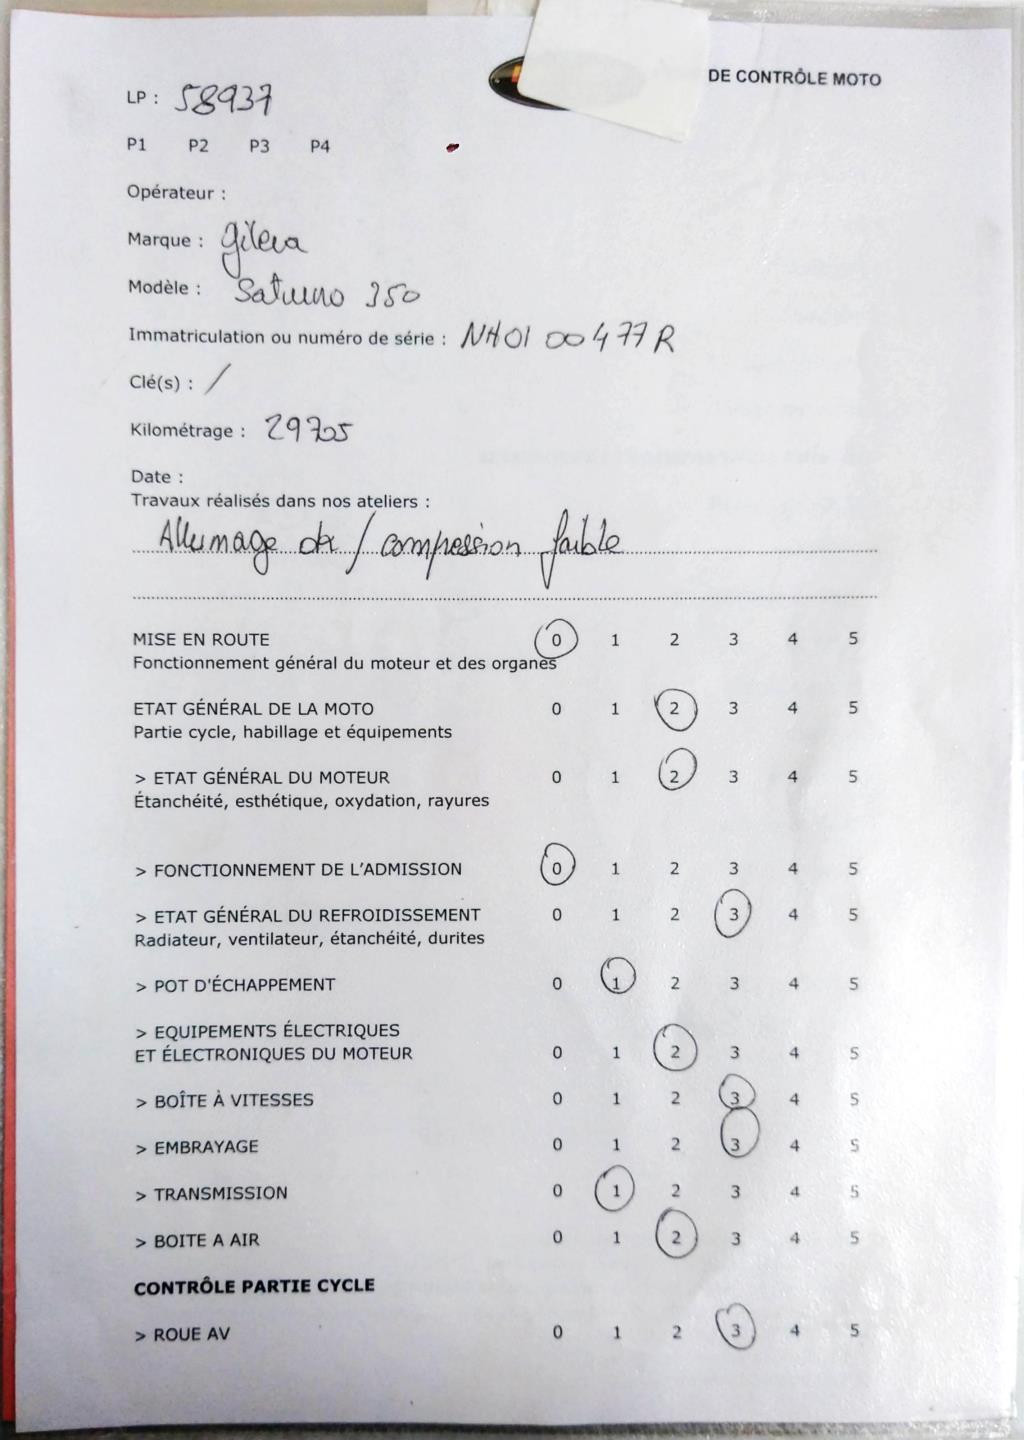 DE CONTRÔLE MOTO
LP : 58937
P1 P2 P3 P4
Opérateur :
Marque : Gilera
Modèle : Saturno 350
Immatriculation ou numéro de série : NH01 00477R
Clé(s) : /
Kilométrage : 29705
Date :
Travaux réalisés dans nos ateliers :
Allumage ok / compression faible
MISE EN ROUTE 0 1 2 3 4 5
Fonctionnement général du moteur et des organes
ETAT GÉNÉRAL DE LA MOTO 0 1 2 3 4 5
Partie cycle, habillage et équipements
> ETAT GÉNÉRAL DU MOTEUR 0 1 2 3 4 5
Étanchéité, esthétique, oxydation, rayures
> FONCTIONNEMENT DE L'ADMISSION 0 1 2 3 4 5
> ETAT GÉNÉRAL DU REFROIDISSEMENT 0 1 2 3 4 5
Radiateur, ventilateur, étanchéité, durites
> POT D'ÉCHAPPEMENT 0 1 2 3 4 5
> EQUIPEMENTS ÉLECTRIQUES
ET ÉLECTRONIQUES DU MOTEUR 0 1 2 3 4 5
> BOÎTE À VITESSES 0 1 2 3 4 5
> EMBRAYAGE 0 1 2 3 4 5
> TRANSMISSION 0 1 2 3 4 5
> BOITE A AIR 0 1 2 3 4 5
CONTRÔLE PARTIE CYCLE
> ROUE AV 0 1 2 3 4 5